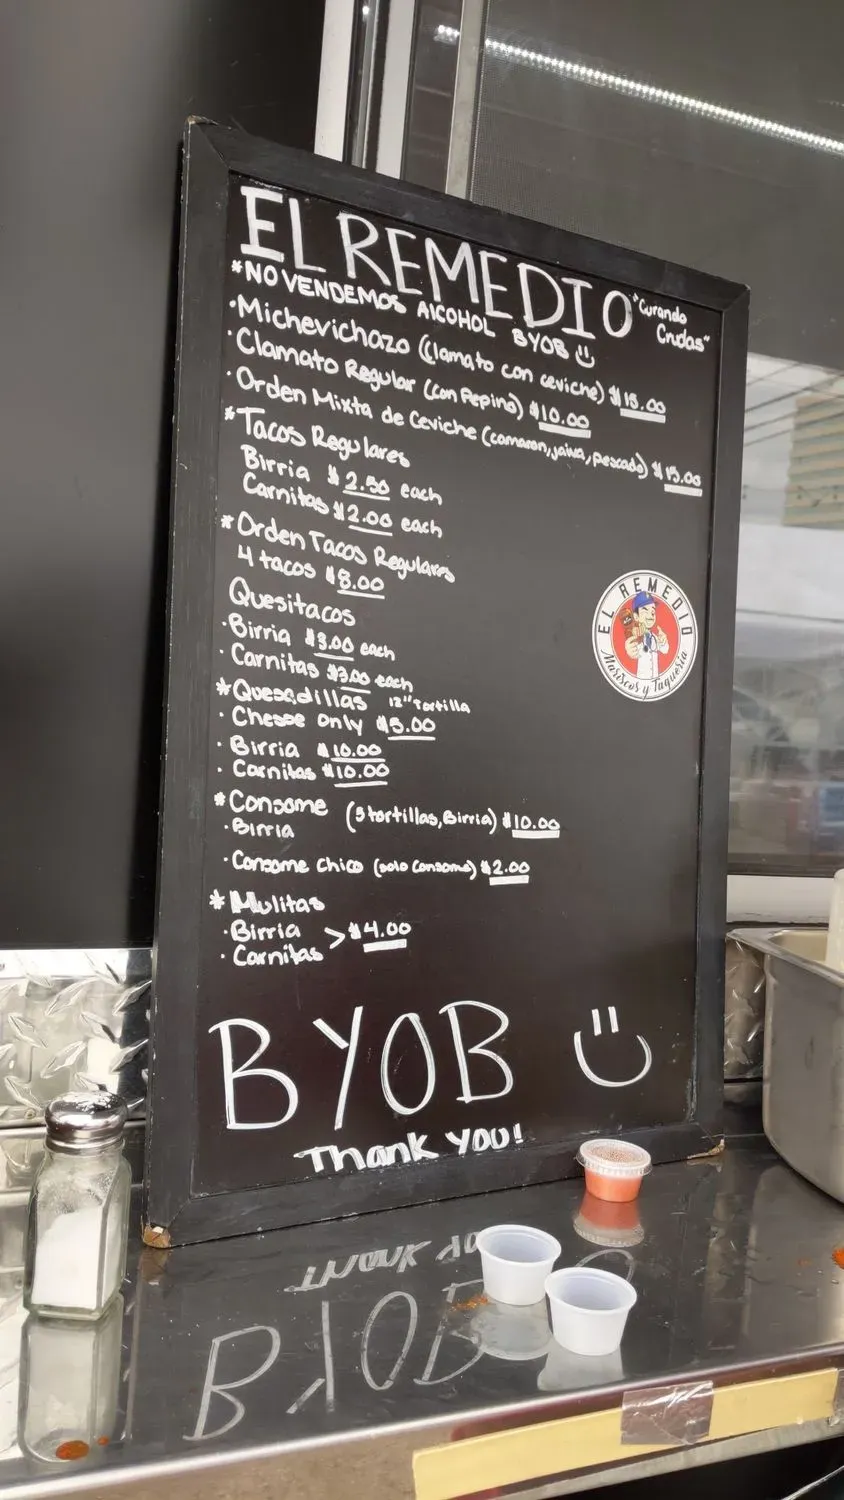 EL REMEDIO "Curando Crudas"
*NO VENDEMOS AlCOHOL BYOB
·Michevichazo (Clamato con ceviche) $15.00
·Clamato Regular (con Pepino) $10.00
·Orden Mixta de Ceviche (camaron, jaiva, pescado) $15.00
*Tacos Regulares
Birria $2.50 each
Carnitas $2.00 each
*Orden Tacos Regulares
4 tacos $8.00
Quesitacos
·Birria $3.00 each
·Carnitas $3.00 each
*Quesadillas 12" Tortilla
·Chesse only $5.00
·Birria $10.00
·Carnitas $10.00
*Consome (3 tortillas, Birria) $10.00
·Birria
·Consome Chico (solo Consome) $2.00
*Mulitas
·Birria > $4.00
·Carnitas
EL REMEDIO
Mariscos y Taqueria
BYOB
Thank YOU!